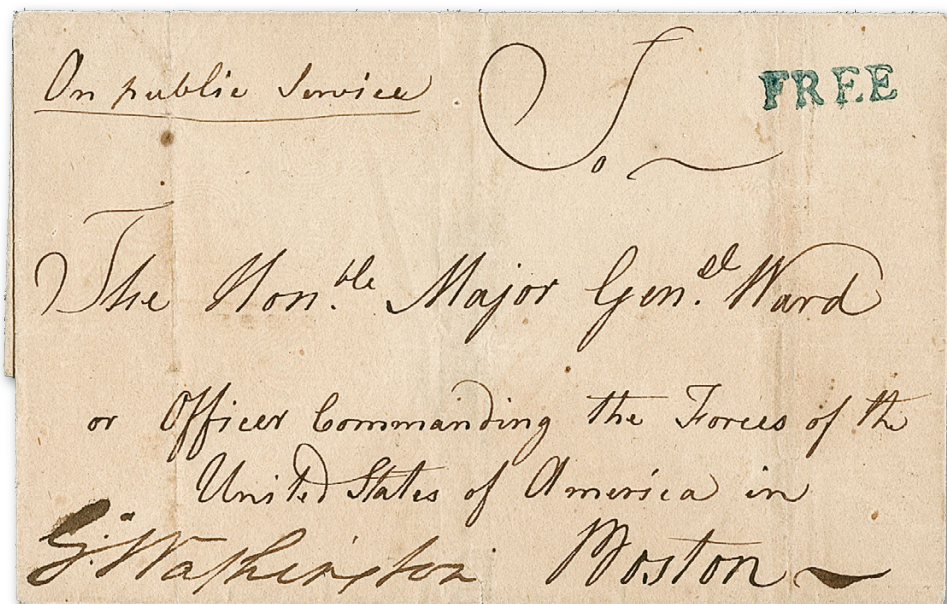 On public Service
To
FREE
The Hon.ble Major Gen.al Ward
or Officer Commanding the Forces of the
United States of America in
Boston
G:Washington